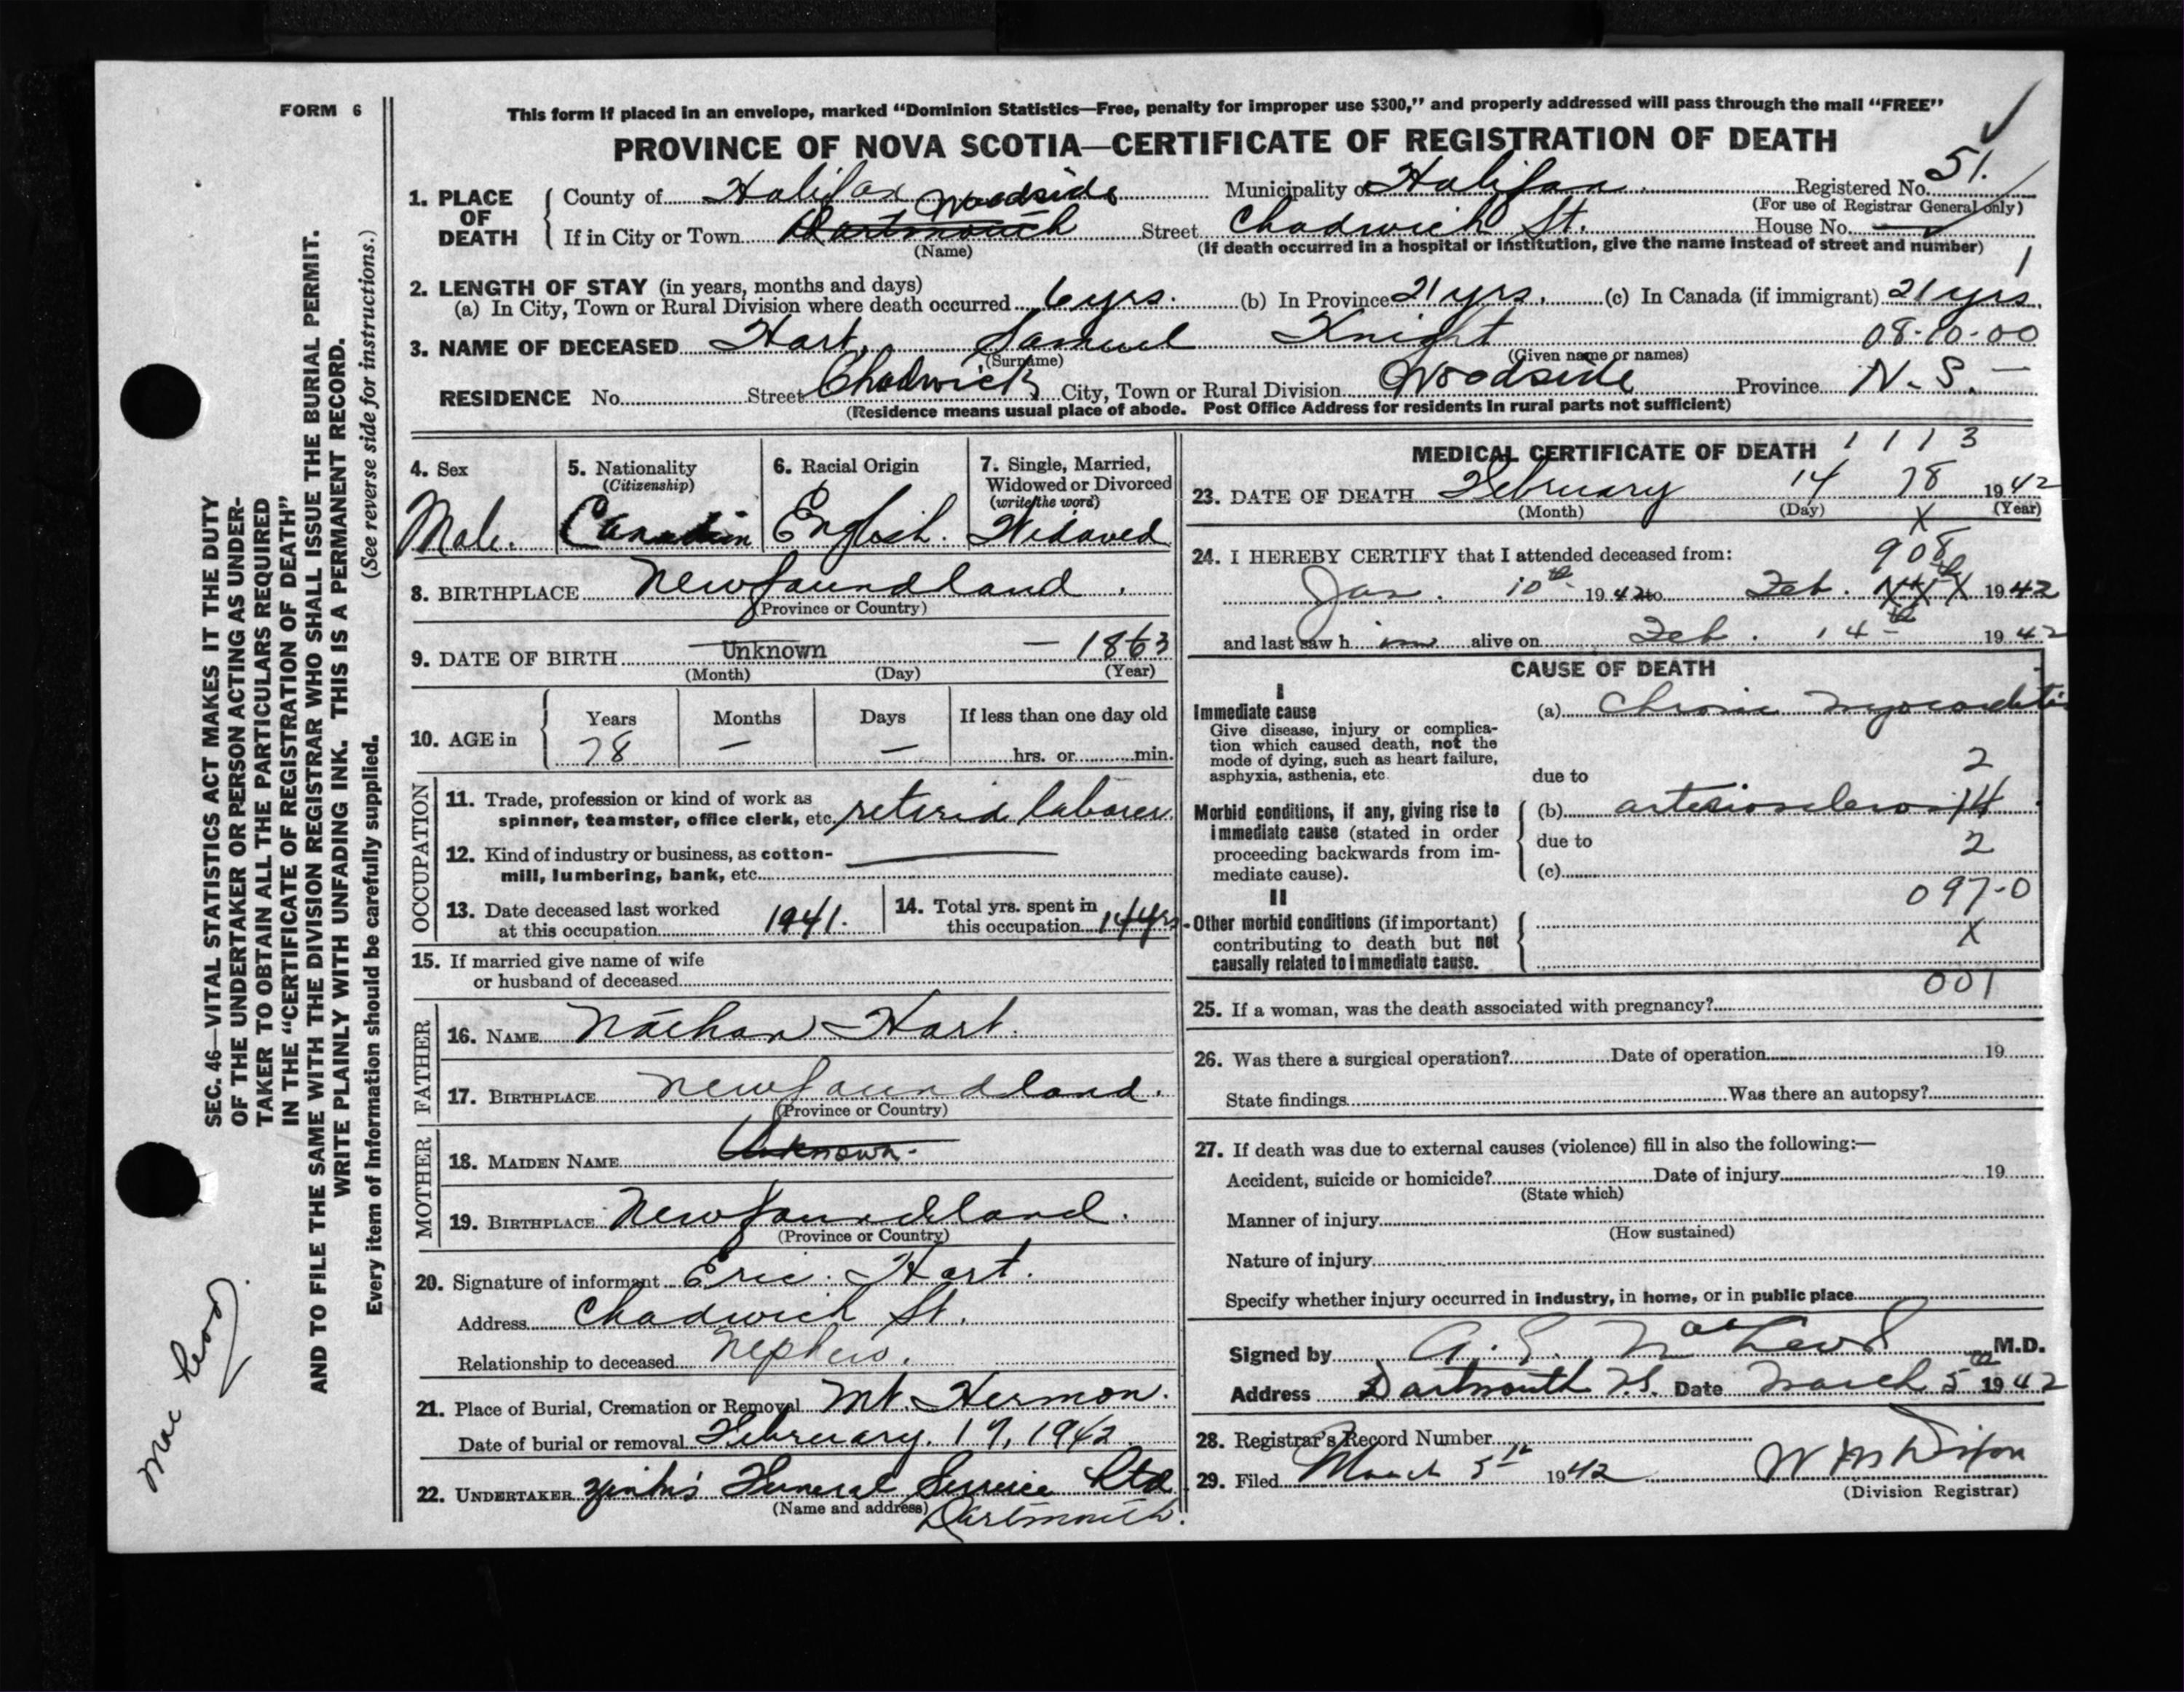 FORM 6
This form if placed in an envelope, marked “Dominion Statistics—Free, penalty for improper use $300,” and properly addressed will pass through the mail “FREE”
PROVINCE OF NOVA SCOTIA—CERTIFICATE OF REGISTRATION OF DEATH
51.
1. PLACE OF DEATH { County of Halifax Woodside Municipality of Halifax Registered No.
(For use of Registrar General only)
If in City or Town Dartmouth Street Chadwick St. House No. —
(Name) (If death occurred in a hospital or institution, give the name instead of street and number)
1
2. LENGTH OF STAY (in years, months and days)
(a) In City, Town or Rural Division where death occurred 6 yrs. (b) In Province 21 yrs. (c) In Canada (if immigrant) 21 yrs.
3. NAME OF DECEASED Hart, Samuel Knight 08-10-00
(Surname) (Given name or names)
RESIDENCE No. Street Chadwick City, Town or Rural Division Woodside Province N.S. —
(Residence means usual place of abode. Post Office Address for residents in rural parts not sufficient)
4. Sex
Male.
5. Nationality
(Citizenship)
Canadian
6. Racial Origin
English.
7. Single, Married,
Widowed or Divorced
(write the word)
Widowed
8. BIRTHPLACE Newfoundland.
(Province or Country)
9. DATE OF BIRTH Unknown — 1863
(Month) (Day) (Year)
10. AGE in { Years Months Days If less than one day old
78 — — hrs. or min.
OCCUPATION
11. Trade, profession or kind of work as
spinner, teamster, office clerk, etc. retired laborer
12. Kind of industry or business, as cotton-
mill, lumbering, bank, etc.
13. Date deceased last worked
at this occupation 1941.
14. Total yrs. spent in
this occupation 14 yrs.
15. If married give name of wife
or husband of deceased
FATHER
16. NAME Nathan Hart.
17. BIRTHPLACE Newfoundland.
(Province or Country)
MOTHER
18. MAIDEN NAME Unknown.
19. BIRTHPLACE Newfoundland.
(Province or Country)
20. Signature of informant Eric. Hart.
Address Chadwick St.
Relationship to deceased Nephew.
21. Place of Burial, Cremation or Removal Mt. Hermon.
Date of burial or removal February. 17, 1942
22. UNDERTAKER Zink's Funeral Service Ltd
(Name and address) Dartmouth.
MEDICAL CERTIFICATE OF DEATH 1 1 1 3
23. DATE OF DEATH February 14 78 1942
(Month) (Day) X (Year)
24. I HEREBY CERTIFY that I attended deceased from: 908
Jan. 10th 1942 to Feb. 1942
and last saw him alive on Feb. 14th 1942
CAUSE OF DEATH
I
Immediate cause
Give disease, injury or complica-
tion which caused death, not the
mode of dying, such as heart failure,
asphyxia, asthenia, etc.
(a) Chronic myocarditis
2
due to
Morbid conditions, if any, giving rise to
immediate cause (stated in order
proceeding backwards from im-
mediate cause).
(b) arteriosclerosis 14
due to
2
(c)
097-0
II
Other morbid conditions (if important)
contributing to death but not
causally related to immediate cause.
X
001
25. If a woman, was the death associated with pregnancy?
26. Was there a surgical operation? Date of operation 19
State findings Was there an autopsy?
27. If death was due to external causes (violence) fill in also the following:—
Accident, suicide or homicide? Date of injury 19
(State which)
Manner of injury
(How sustained)
Nature of injury
Specify whether injury occurred in industry, in home, or in public place
Signed by A. G. MacLeod M.D.
Address Dartmouth N.S. Date March 5th 1942
28. Registrar's Record Number
29. Filed March 5th 1942 W M Dixon
(Division Registrar)
SEC. 46—VITAL STATISTICS ACT MAKES IT THE DUTY
OF THE UNDERTAKER OR PERSON ACTING AS UNDER-
TAKER TO OBTAIN ALL THE PARTICULARS REQUIRED
IN THE “CERTIFICATE OF REGISTRATION OF DEATH”
AND TO FILE THE SAME WITH THE DIVISION REGISTRAR WHO SHALL ISSUE THE BURIAL PERMIT.
WRITE PLAINLY WITH UNFADING INK. THIS IS A PERMANENT RECORD.
Every item of information should be carefully supplied. (See reverse side for instructions.)
MacLeod